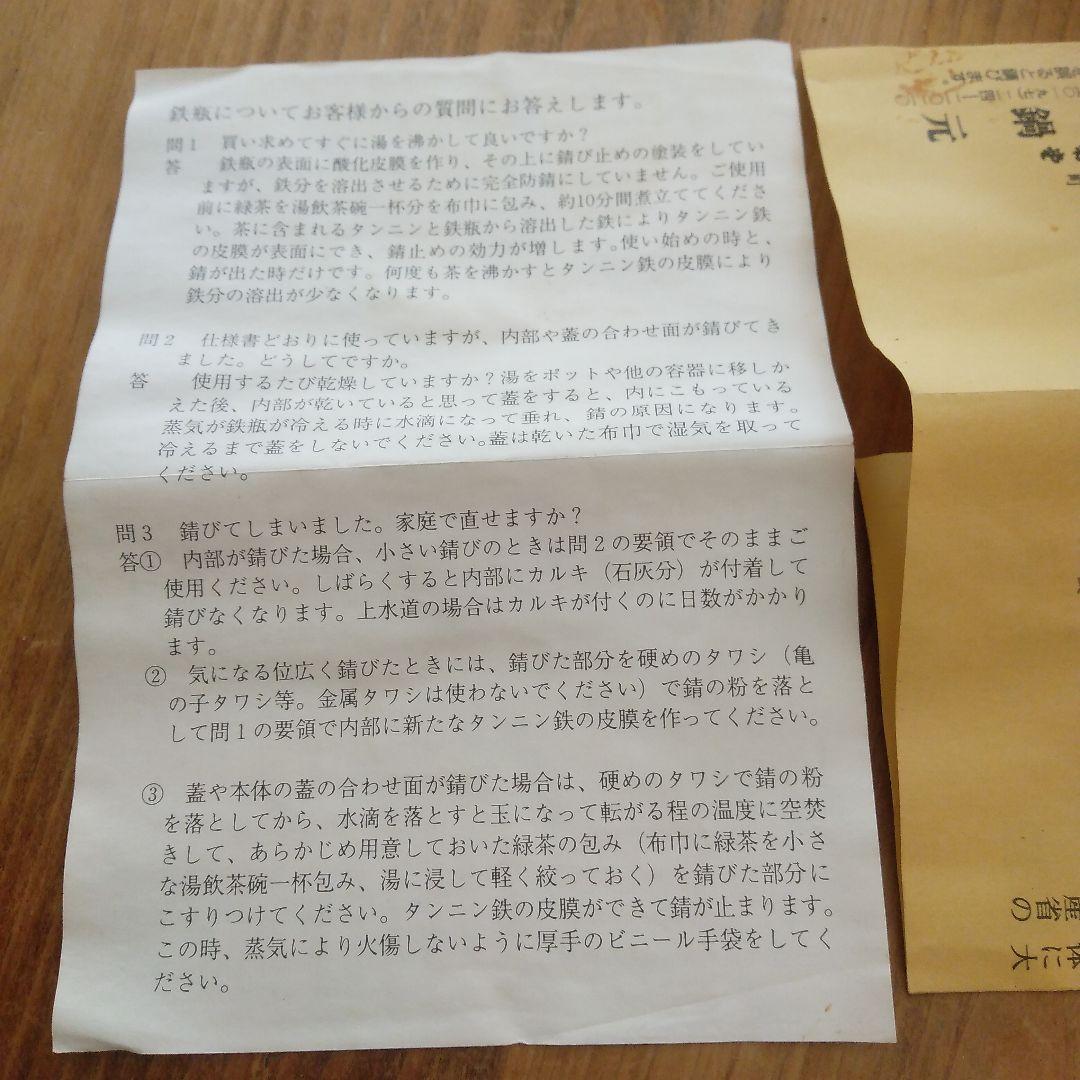 鉄瓶についてお客様からの質問にお答えします。
問1 買い求めてすぐに湯を沸かして良いですか?
答 鉄瓶の表面に酸化皮膜を作り、その上に錆び止めの塗装をしてい
ますが、鉄分を溶出させるために完全防錆にしていません。ご使用
前に緑茶を湯飲茶碗一杯分を布巾に包み、約10分間煮立ててくださ
い。茶に含まれるタンニンと鉄瓶から溶出した鉄によりタンニン鉄
の皮膜が表面にでき、錆止めの効力が増します。使い始めの時と、
錆が出た時だけです。何度も茶を沸かすとタンニン鉄の皮膜により
鉄分の溶出が少なくなります。
問2 仕様書どおりに使っていますが、内部や蓋の合わせ面が錆びてき
ました。どうしてですか。
答 使用するたび乾燥していますか?湯をポットや他の容器に移しか
えた後、内部が乾いていると思って蓋をすると、内にこもっている
蒸気が鉄瓶が冷える時に水滴になって垂れ、錆の原因になります。
冷えるまで蓋をしないでください。蓋は乾いた布巾で湿気を取って
ください。
問3 錆びてしまいました。家庭で直せますか?
答① 内部が錆びた場合、小さい錆びのときは問2の要領でそのままご
使用ください。しばらくすると内部にカルキ(石灰分)が付着して
錆びなくなります。上水道の場合はカルキが付くのに日数がかかり
ます。
② 気になる位広く錆びたときには、錆びた部分を硬めのタワシ(亀
の子タワシ等。金属タワシは使わないでください)で錆の粉を落と
して問1の要領で内部に新たなタンニン鉄の皮膜を作ってください。
③ 蓋や本体の蓋の合わせ面が錆びた場合は、硬めのタワシで錆の粉
を落としてから、水滴を落とすと玉になって転がる程の温度に空焚
きして、あらかじめ用意しておいた緑茶の包み(布巾に緑茶を小さ
な湯飲茶碗一杯包み、湯に浸して軽く絞っておく)を錆びた部分に
こすりつけてください。タンニン鉄の皮膜ができて錆が止まります。
この時、蒸気により火傷しないように厚手のビニール手袋をしてく
ださい。
鍋元
産省の
体に大